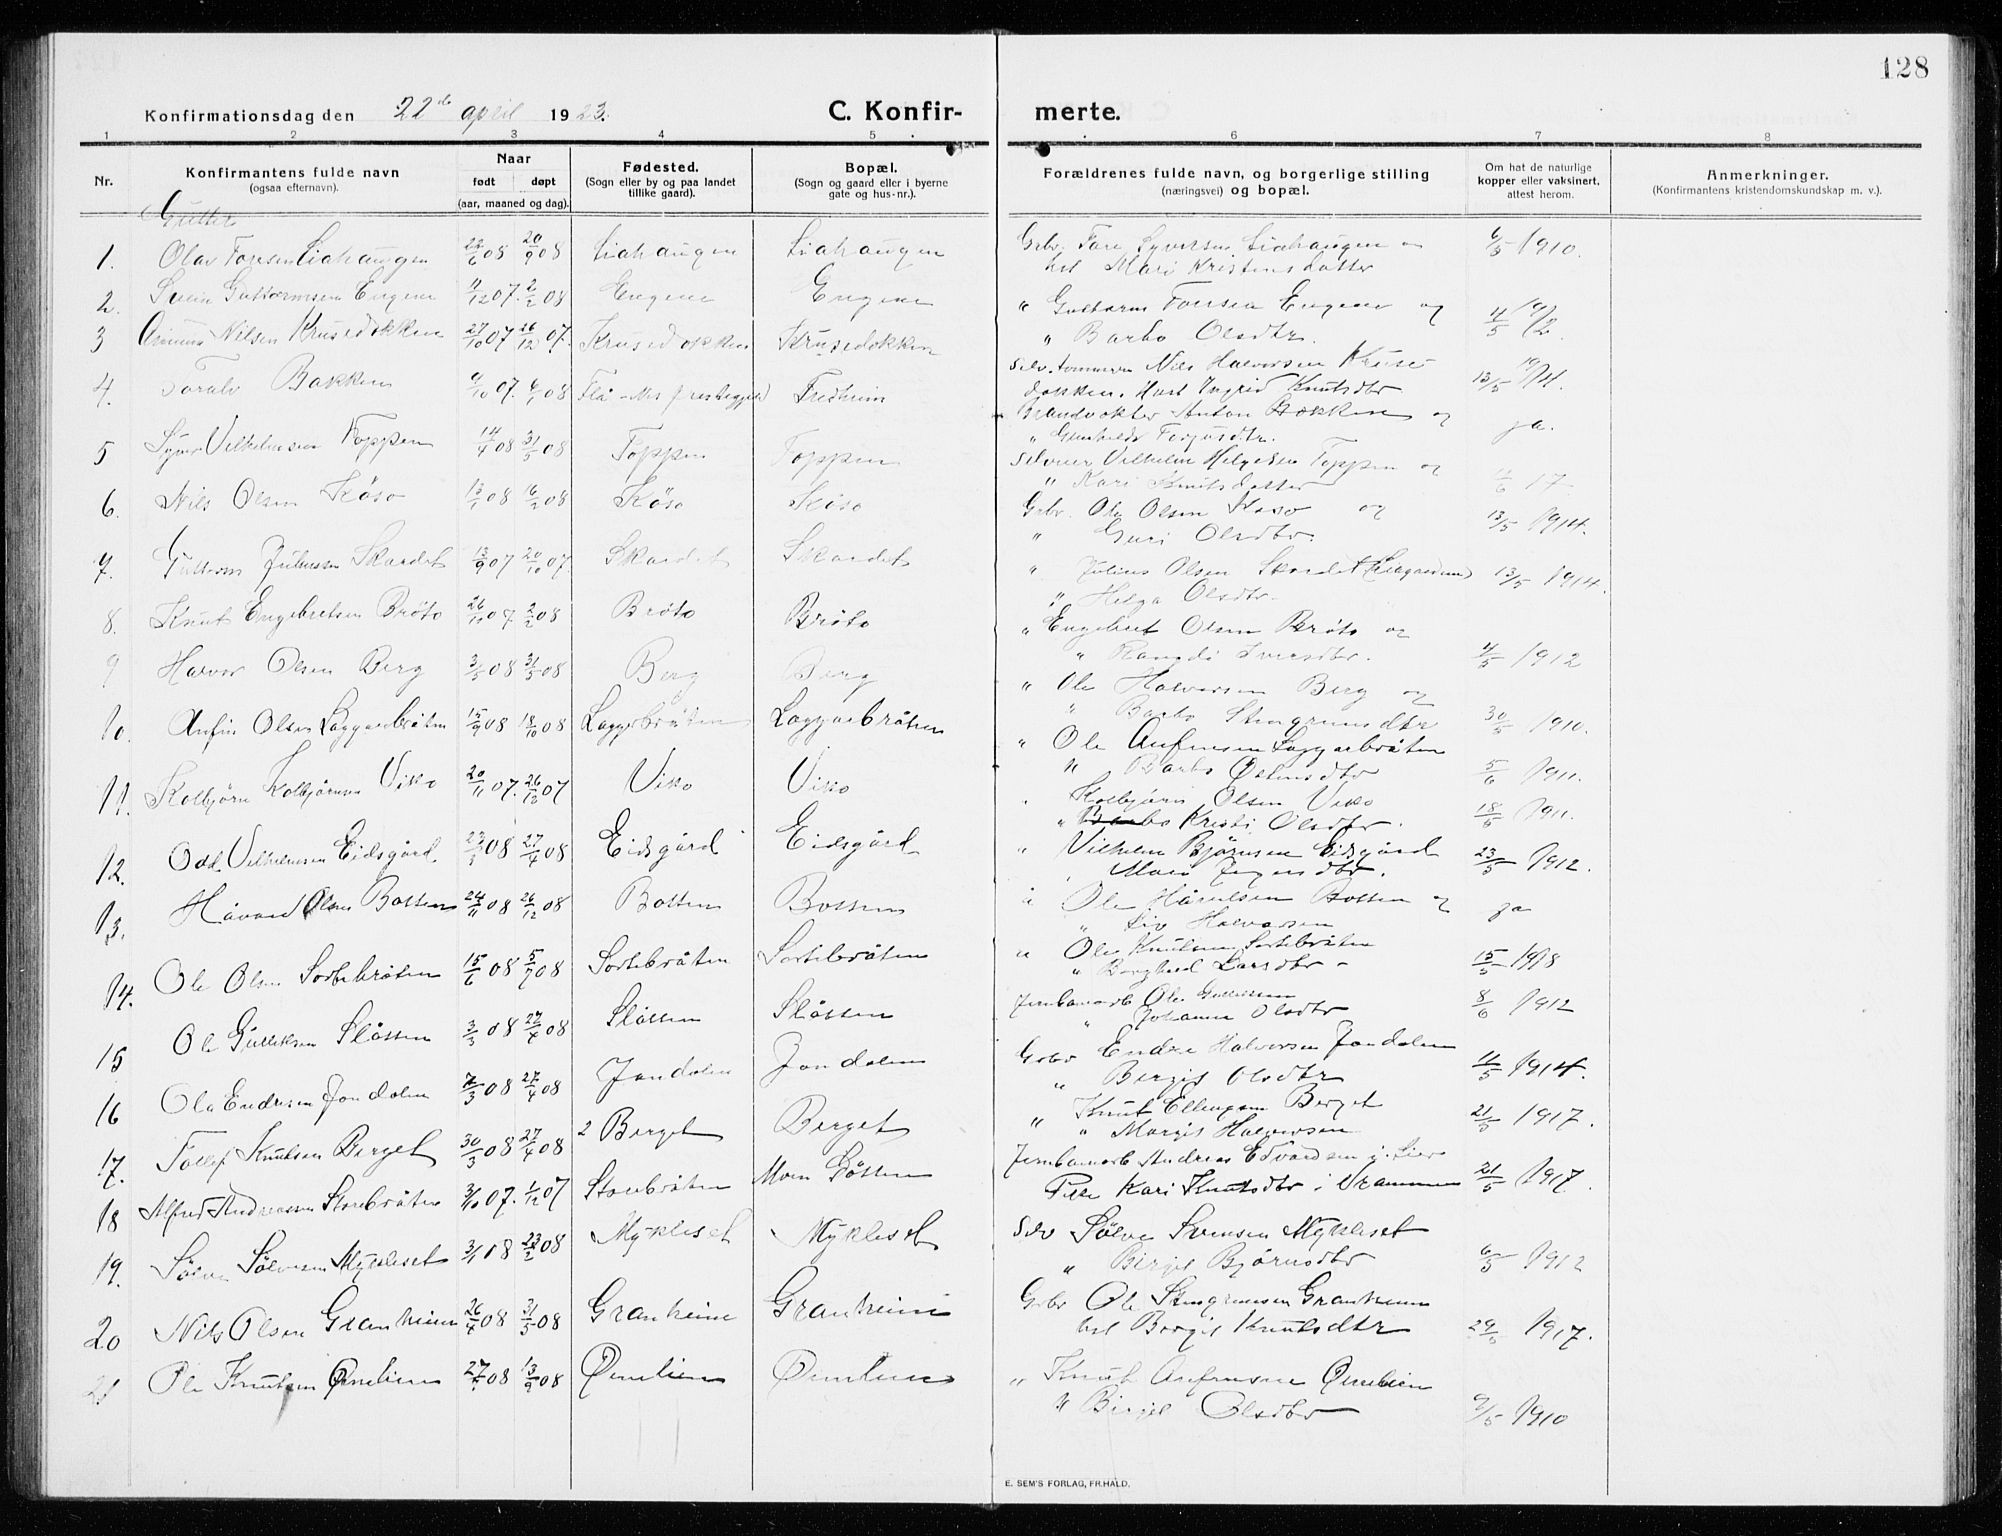 128
Konfirmationsdag den 22de april 1923. C. Konfir- merte.
1 2 3 4 5 6 7 8
Nr. Konfirmantens fulde navn (ogsaa efternavn). Naar født døpt (aar, maaned og dag). Fødested. (Sogn eller by og paa landet tillike gaard). Bopæl. (Sogn og gaard eller i byerne gate og hus-nr.). Forældrenes fulde navn, og borgerlige stilling (næringsvei) og bopæl. Om hat de naturlige kopper eller vaksinert, attest herom. Anmerkninger. (Konfirmantens kristendomskundskap m. v.).
Gutter
1. Olav Toresen Liahaugen 08 20/9 08 Liahaugen Liahaugen Gbr. Tore Syversen Liahaugen og 6/5 1910.
hst Mari Kristensdatter
2. Svein Guttormsen Engene 11/12 07. 2/2 08 Engene Engene " Guttorm Toresen Engene og 4/5
" Barbo Olsdtr.
3 Nilsen Krusedokken 27/10 07 26/12 07. Krusedokken Krusedokken Nils Halvorsen Kruse-
dokken. Hust Ingrid Knutsdtr 13/5
4. Toralv Bakken 9/10 07. 08 Flå - Nes prestegjeld Fredheim Anton Bakken og ja.
" Gunhild
5 Syver Vilhelmsen Toppen 14/4 08 31/5 08 Toppen Toppen Vilhelm Helgesen Toppen og
" Kari Knutsdatter 17
6. Nils Olsen Köso 13/1 08 16/2 08 Köso Köso Gbr. Ole Olsen Köso og 13/5 1914.
" Guri Olsdtr.
7. Guttorm Juliussen Skardet 13/9 07 20/10 07 Skardet Skardet " Julius Olsen Skardet 13/5 1914.
" Helga Olsdtr.
8. Knut Engebretsen Bröto 26/11 07. 2/2 08 Bröto Bröto " Engebret Olsen Bröto og
" Iversdtr. 4/5 1912
9 Halvor Olsen Berg 3/5 08 31/5 08 Berg Berg " Ole Halvorsen Berg og
" Barbo Stengrimsdtr 30/5 1910.
10. Anfin Olsen Laggarbråten 15/9 08 18/10 08 Laggerbråten Laggarbråten " Ole Anfinsen Laggarbråten
" Barbo 5/6 1911.
11. Kolbjörn Kolbjörnsen Viko 20/11 07. 26/12 07 Viko Viko Kolbjörn Olsen Viko
" Kristi Olsdtr. 18/5 1911.
12. Odd Vilhelmsen Eidsgård 23/3 08 27/4 08 Eidsgård Eidsgård " Vilhelm Björnsen Eidsgård 23/5 1912.
Mari
13. Håvard Olsen Botten 24/11 08 26/12 08 Botten Botten " Ole Botten og ja
" Liv Halvorsen
14. Ole Olsen Sortebråten 15/6 08 5/7 08 Sortebråten Sortebråten " Ole Knutsen Sortebråten
" Larsdtr 15/5 1918
15 Ole Gulliksen Slåtten 3/3 08 27/4 08 Slåtten Slåtten Jernbanearb Ole Gulliksen 8/6 1912
" Johanne Olsdtr
16 Ola Endresen Jondalen 7/3 08 27/4 08 Jondalen Jondalen Gbr Endre Halvorsen Jondalen
" Birgit Olsdtr 11/5 1914.
17. Tollef Knutsen Berget 30/3 08 27/4 08 Berget Berget " Knut Ellingsen Berget 21/5 1917.
" Margit Halvorsen
18 Alfred Andreassen Storebråten 3/10 07. 1/12 07 Storebråten Moen Jernbanearb Andreas Edvardsen i Lier
Pike Kari Knutsdtr i Drammen 21/5 1917.
19. Sölve Sölvesen Mykleset 3/1 08 23/2 08 Mykleset Mykleset Selv Sölve Svensen Mykleset
" Birgit Björnsdtr 6/5 1912
20 Nils Olsen Granheim 26/4 08 31/5 08 Granheim Granheim Gbr Ole Stengrimsen Granheim
hst Birgit Knutsdtr 29/5 1917.
21 Ole Knutsen Ørnelien 27 08 13/9 08 Ørnelien Ørnelien " Knut Anfinsen Ørnelien
" Birgit Olsdtr 9/5 1910
E. SEM'S FORLAG, FR.HALD.